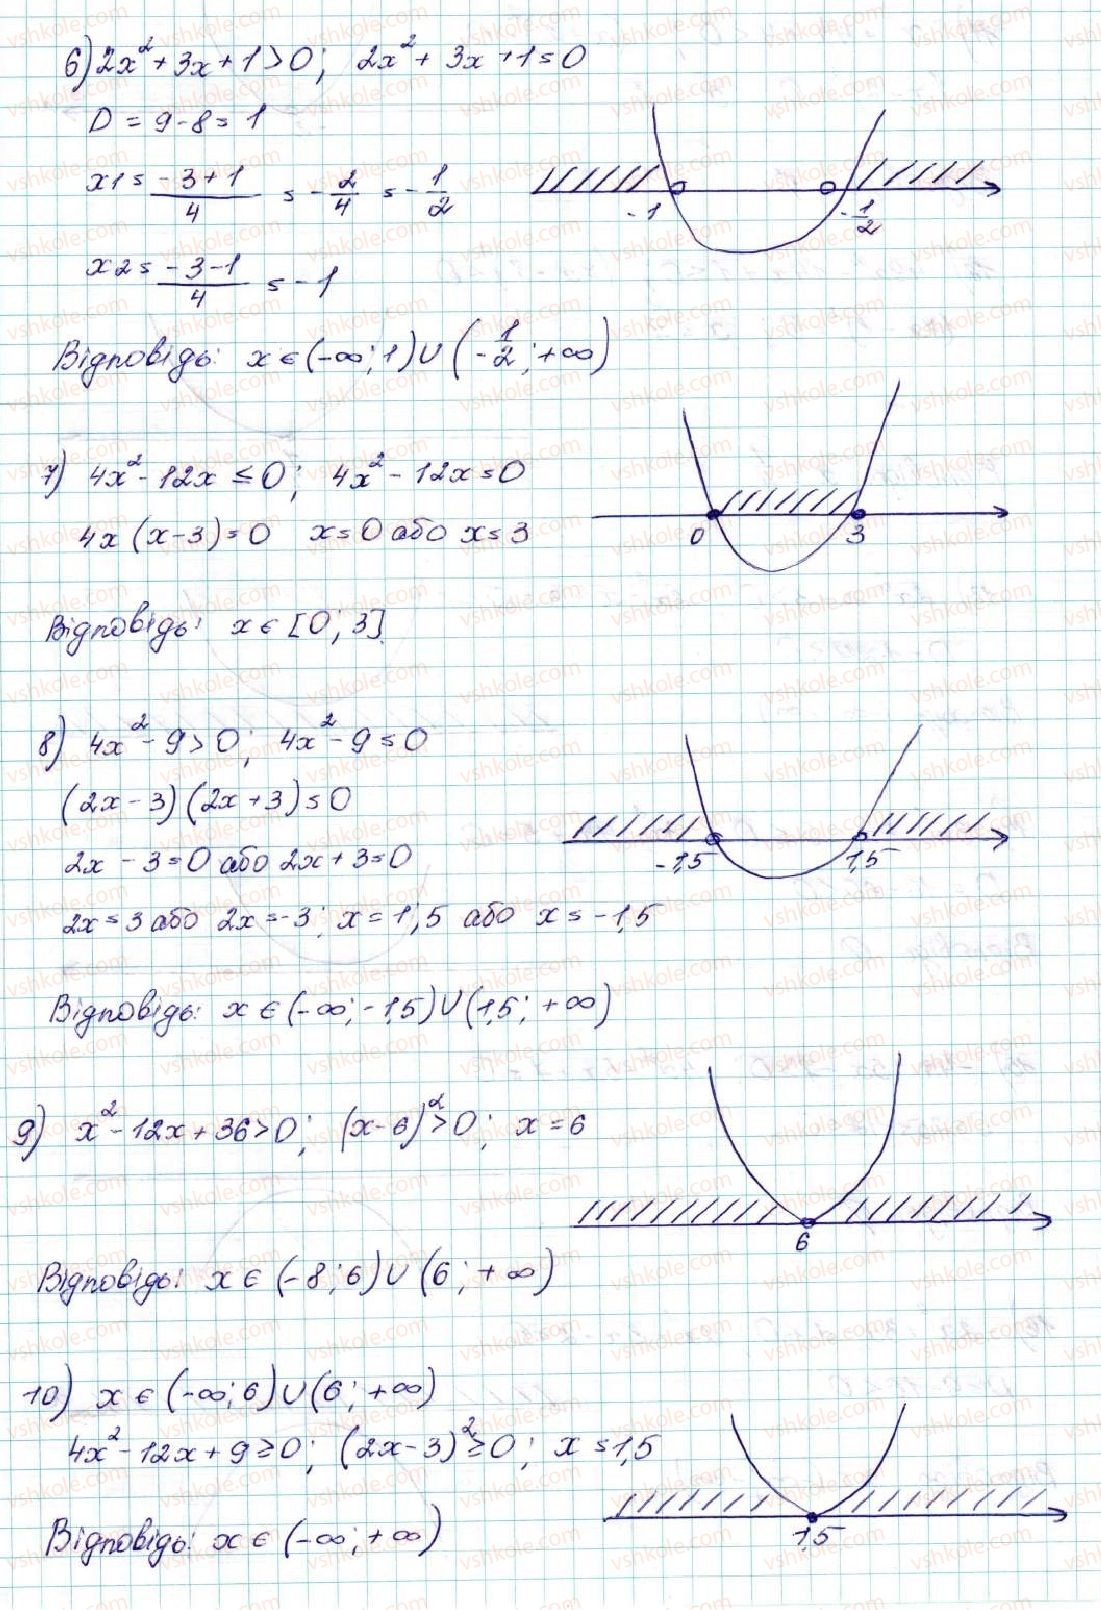 6) 2x² + 3x + 1 > 0; 2x² + 3x + 1 = 0
D = 9 - 8 = 1
x1 = (-3+1)/4 = -2/4 = -1/2
x2 = (-3-1)/4 = -1
-1 -1/2
Відповідь: x ∈ (-∞; 1) ∪ (-1/2; +∞)
7) 4x² - 12x ≤ 0; 4x² - 12x = 0
4x (x-3) = 0 x = 0 або x = 3
0 3
Відповідь: x ∈ [0; 3]
8) 4x² - 9 > 0; 4x² - 9 = 0
(2x - 3)(2x + 3) = 0
2x - 3 = 0 або 2x + 3 = 0
-1,5 1,5
2x = 3 або 2x = -3; x = 1,5 або x = -1,5
Відповідь: x ∈ (-∞; -1,5) ∪ (1,5; +∞)
9) x² - 12x + 36 > 0; (x-6)² > 0; x = 6
6
Відповідь: x ∈ (-8; 6) ∪ (6; +∞)
10) x ∈ (-∞; 6) ∪ (6; +∞)
4x² - 12x + 9 ≥ 0; (2x-3)² ≥ 0; x = 1,5
1,5
Відповідь: x ∈ (-∞; +∞)
vshkole.com